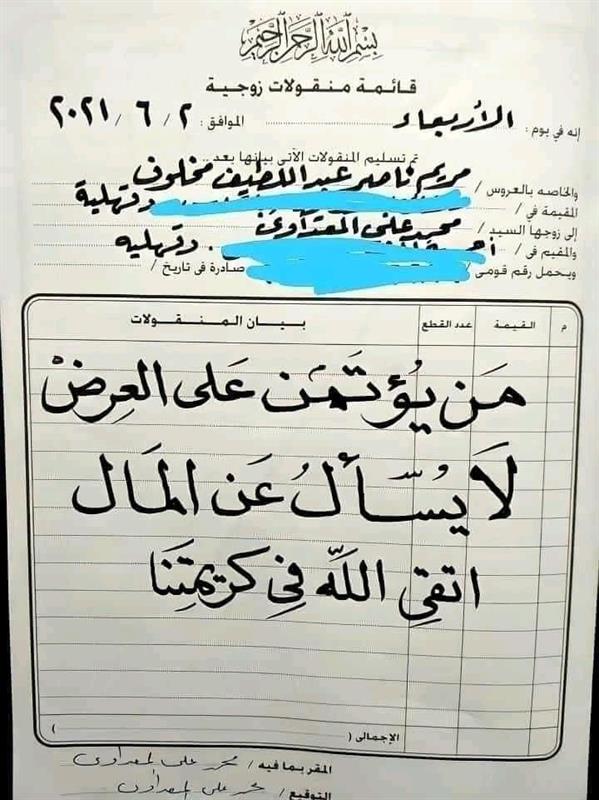 بسم الله الرحمن الرحيم
قائمة منقولات زوجية
إنه في يوم : الأربعاء الموافق : ٢ / ٦ / ٢٠٢١
تم تسليم المنقولات الآتى بيانها بعد ..
والخاصه بالعروس / مريم ناصر عبد اللطيف مخلوف
المقيمة في / دقهلية
إلى زوجها السيد / محمد على المعداوى
والمقيم فى / دقهليه
ويحمل رقم قومى / صادرة فى تاريخ /
م القيمة عدد القطع بيان المنقولات
مَن يُؤتَمَن عَلى العِرضْ
لَا يُسّألُ عَن المَال
اتقِي اللَّه فِي كريمتِنَا
الإجمالى ( )
المقر بما فيه / محمد على المعداوى
التوقيع / محمد على المعداوى